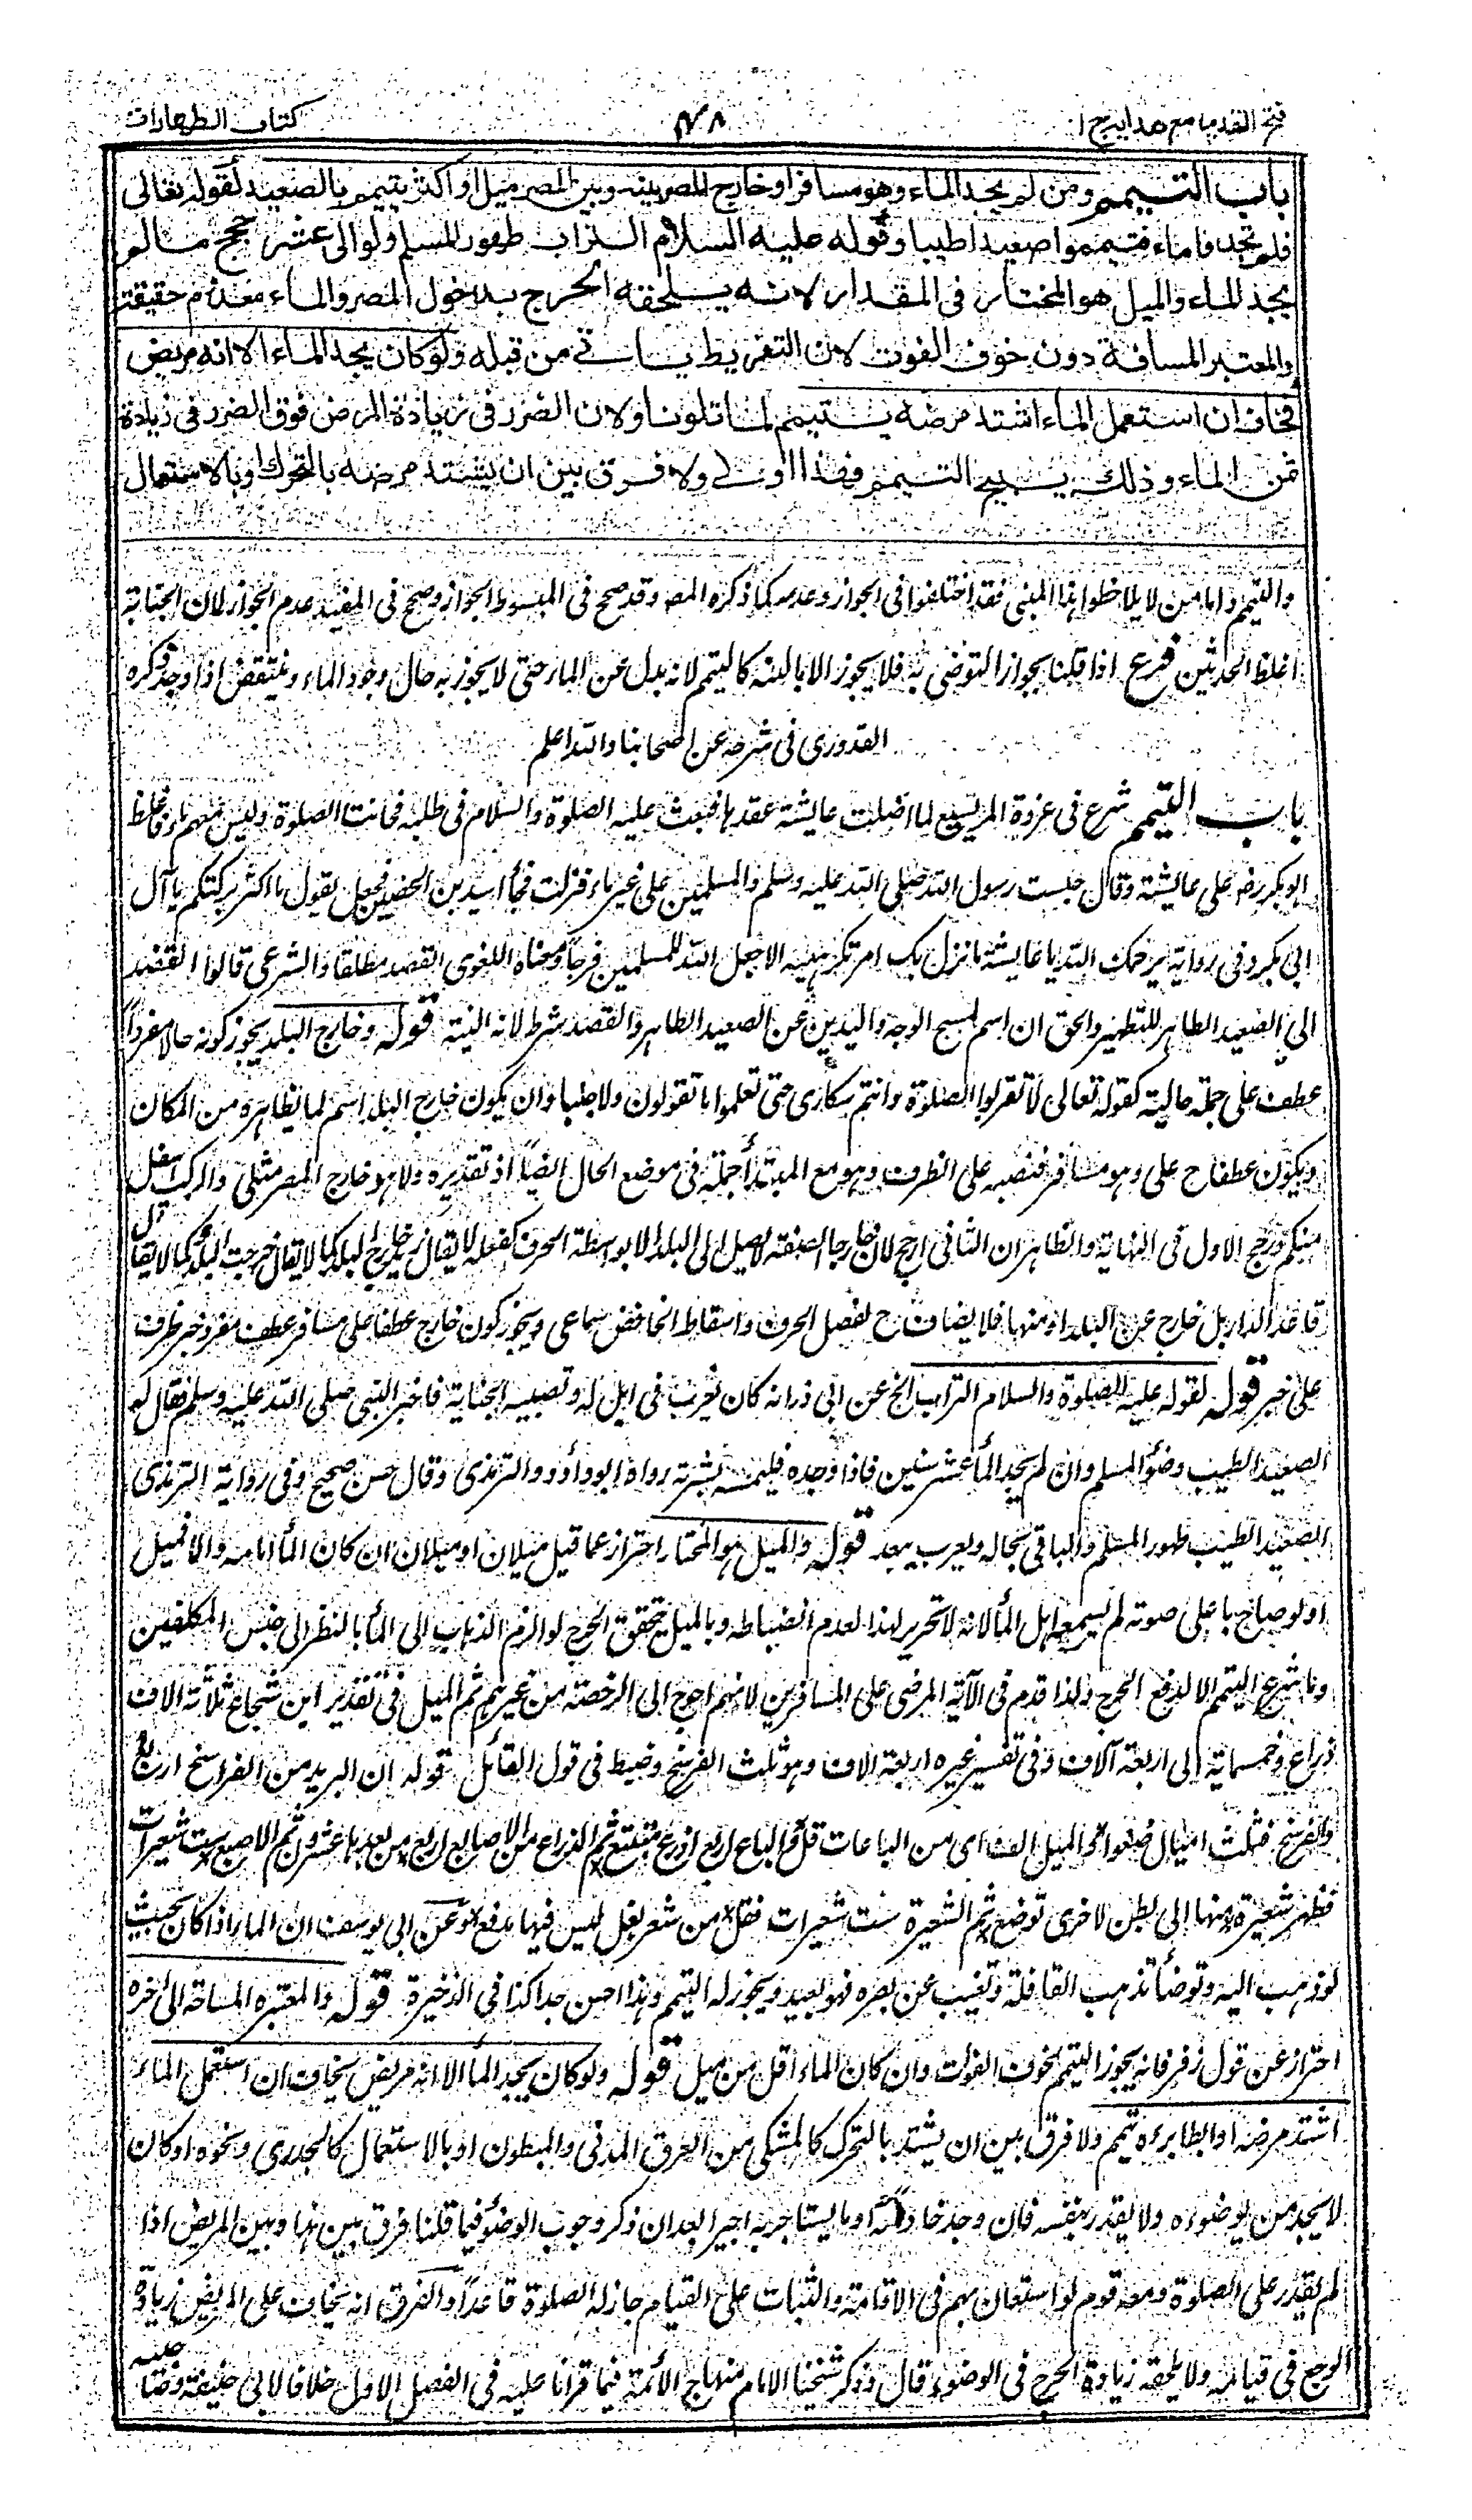 فتح القدير مع هدايه ج ١
٤٨
كتاب الطهارات
باب التيمم ومن لم يجد الماء وهو مسافر او خارج المصر بينه وبين المصر ميل او اكثر يتيمم بالصعيد لقوله تعالى
فلم تجدوا ماء فتيمموا صعيدا طيبا وقوله عليه السلام التراب طهور المسلم ولو الى عشر حجج مالم
يجد الماء والميل هو المختار فى المقدار لانه يلحقه الحرج بدخول المصر والماء معدوم حقيقة
والمعتبر المسافة دون خوف الفوت لان التفريط ياتى من قبله ولو كان يجد الماء الا انه مريض
فخاف ان استعمل الماء اشتد مرضه يتيمم لما تلونا ولان الضرر فى زيادة المرض فوق الضرر فى زيادة
ثمن الماء وذلك يبيح التيمم فهذا اولى ولا فرق بين ان يشتد مرضه بالتحرك او بالاستعمال
والتيمم واما من لا يلاحظوا هذا المبنى فقد اختلفوا فى الجواز وعدمه كما ذكره المص وقد صحح فى المبسوط الجواز وصحح فى المفيد عدم الجواز لان الجنابة
اغلظ الحدثين فرع اذا قلنا بجواز التوضى به فلا يجوز الا بالنية كالتيمم لانه بدل عن الماء حتى لا يجوز به حال وجود الماء وينتقض اذا وجد ذكره
القدورى فى شرحه عن اصحابنا والله اعلم
باب التيمم شرع فى غزوة المريسيع لما اضلت عايشة عقدها فبعث عليه الصلوة والسلام فى طلبه فحانت الصلوة وليس معهم ماء فاغلظ
ابو بكر رضه على عايشة وقال حبست رسول الله صلى الله عليه وسلم والمسلمين على غير ماء فنزلت فجاء اسيد بن الحضير فجعل يقول ما اكثر بركتكم يا آل
ابى بكر وفى رواية يرحمك الله يا عايشة ما نزل بك امر تكرهينه الا جعل الله للمسلمين فرجا ومعناه اللغوى القصد مطلقا والشرعى قالوا القصد
الى الصعيد الطاهر للتطهير والحق ان اسم لمسح الوجه واليدين عن الصعيد الطاهر والقصد شرط لانه النية قوله وخارج البلد يجوز كونه حالا مفردا
عطف على جملة حالية كقوله تعالى لا تقربوا الصلوة وانتم سكارى حتى تعلموا ما تقولون ولا جنبا وان يكون خارج البلد اسم لما يظاهره من المكان
ويكون عطفا ح على وهو مسافر فنصبه على الظرف وهو مع المبتدأ جملة فى موضع الحال ايضا اذ تقديره ولا هو خارج المصر مثلى والركب اسفل
منكم ورجح الاول فى النهاية والظاهر ان الثانى ارجح لان خارجا الصفة لا يصل الى البلد الا بواسطة الحرف كفعله لا يقال زيد خارج البلد كما لا يقال خرجت البلد كما لا يقال
قاعد الدار بل خارج عن البلد او منها فلا يضاف ح لفصل الحرف واسقاط الخافض سماعى ويجوز كون خارج عطفا على مسافر عطف مفرد خبر ظرف
على خبر قوله لقوله عليه الصلوة والسلام التراب الخ عن ابى ذر انه كان يعزب فى ابل له وتصيبه الجنابة فاخبر النبى صلى الله عليه وسلم فقال له
الصعيد الطيب وضوء المسلم وان لم يجد الماء عشر سنين فاذا وجده فليمسه بشرته رواه ابو داود والترمذى وقال حسن صحيح وفى رواية الترمذى
الصعيد الطيب طهور المسلم والباقى بحاله ويعزب يبعد قوله والميل هو المختار احتراز عما قيل ميلان او ميلان ان كان الماء امامه والا فميل
او لو صاح باعلى صوته لم يسمعه اهل الماء لانه لا تحرير لهذا لعدم انضباطه وبالميل يتحقق الحرج لو الزم الذهاب الى الماء بالنظر الى جنس المكلفين
وما شرع التيمم الا لدفع الحرج ولذا قدم فى الآية المرضى على المسافرين لانهم احوج الى الرخصة من غيرهم ثم الميل فى تقدير ابن شجاع ثلاثة الاف
ذراع وخمسماية الى اربعة آلاف وفى تفسير غيره اربعة الاف وهو ثلث الفرسخ وضبط فى قول القائل قوله ان البريد من الفراسخ اربع
والفرسخ فثلث اميال ضعوا والميل الف اى من الباعات قل والباع اربع اذرع فتتبع ثم الذراع من الاصابع اربع من بعدها عشرون ثم الاصبع ست شعيرات
فظهر شعيرة منها الى بطن لاخرى توضع ثم الشعيرة ست شعيرات فقل من شعر بغل ليس فيها مدفع وعن ابى يوسف ان الماء اذا كان بحيث
لو ذهب اليه وتوضأ تذهب القافلة وتغيب عن بصره فهو بعيد ويجوز له التيمم وهذا احسن جدا كذا فى الذخيرة قوله والمعتبره المسافة الى آخره
احتراز عن قول زفر فانه يجوز التيمم لخوف الفوت وان كان الماء اقل من ميل قوله ولو كان يجد الماء الا انه مريض يخاف ان استعمل الماء
اشتد مرضه او ابطأ برءه تيمم ولا فرق بين ان يشتد بالتحرك كالمشتكى من العرق المدنى والمبطون او بالاستعمال كالجدرى ونحوه او كان
لا يجد من يوضوءه ولا يقدر بنفسه فان وجد خادما له او ما يستاجر به اجيرا بعد ان ذكر وجوب الوضوء فيما قلنا فرق بين هذا وبين المريض اذا
لم يقدر على الصلوة ومعه قوم لو استعان بهم فى الاقامة والثبات على القيام جاز له الصلوة قاعدا والفرق انه يخاف على المريض زيادة
الوجع فى قيامه ولا يلحقه زيادة الحرج فى الوضوء قال وذكر شيخنا الامام منهاج الأئمة فيما قرانا عليه فى الفصل الاول خلافا لابى حنيفة وصاحبيه